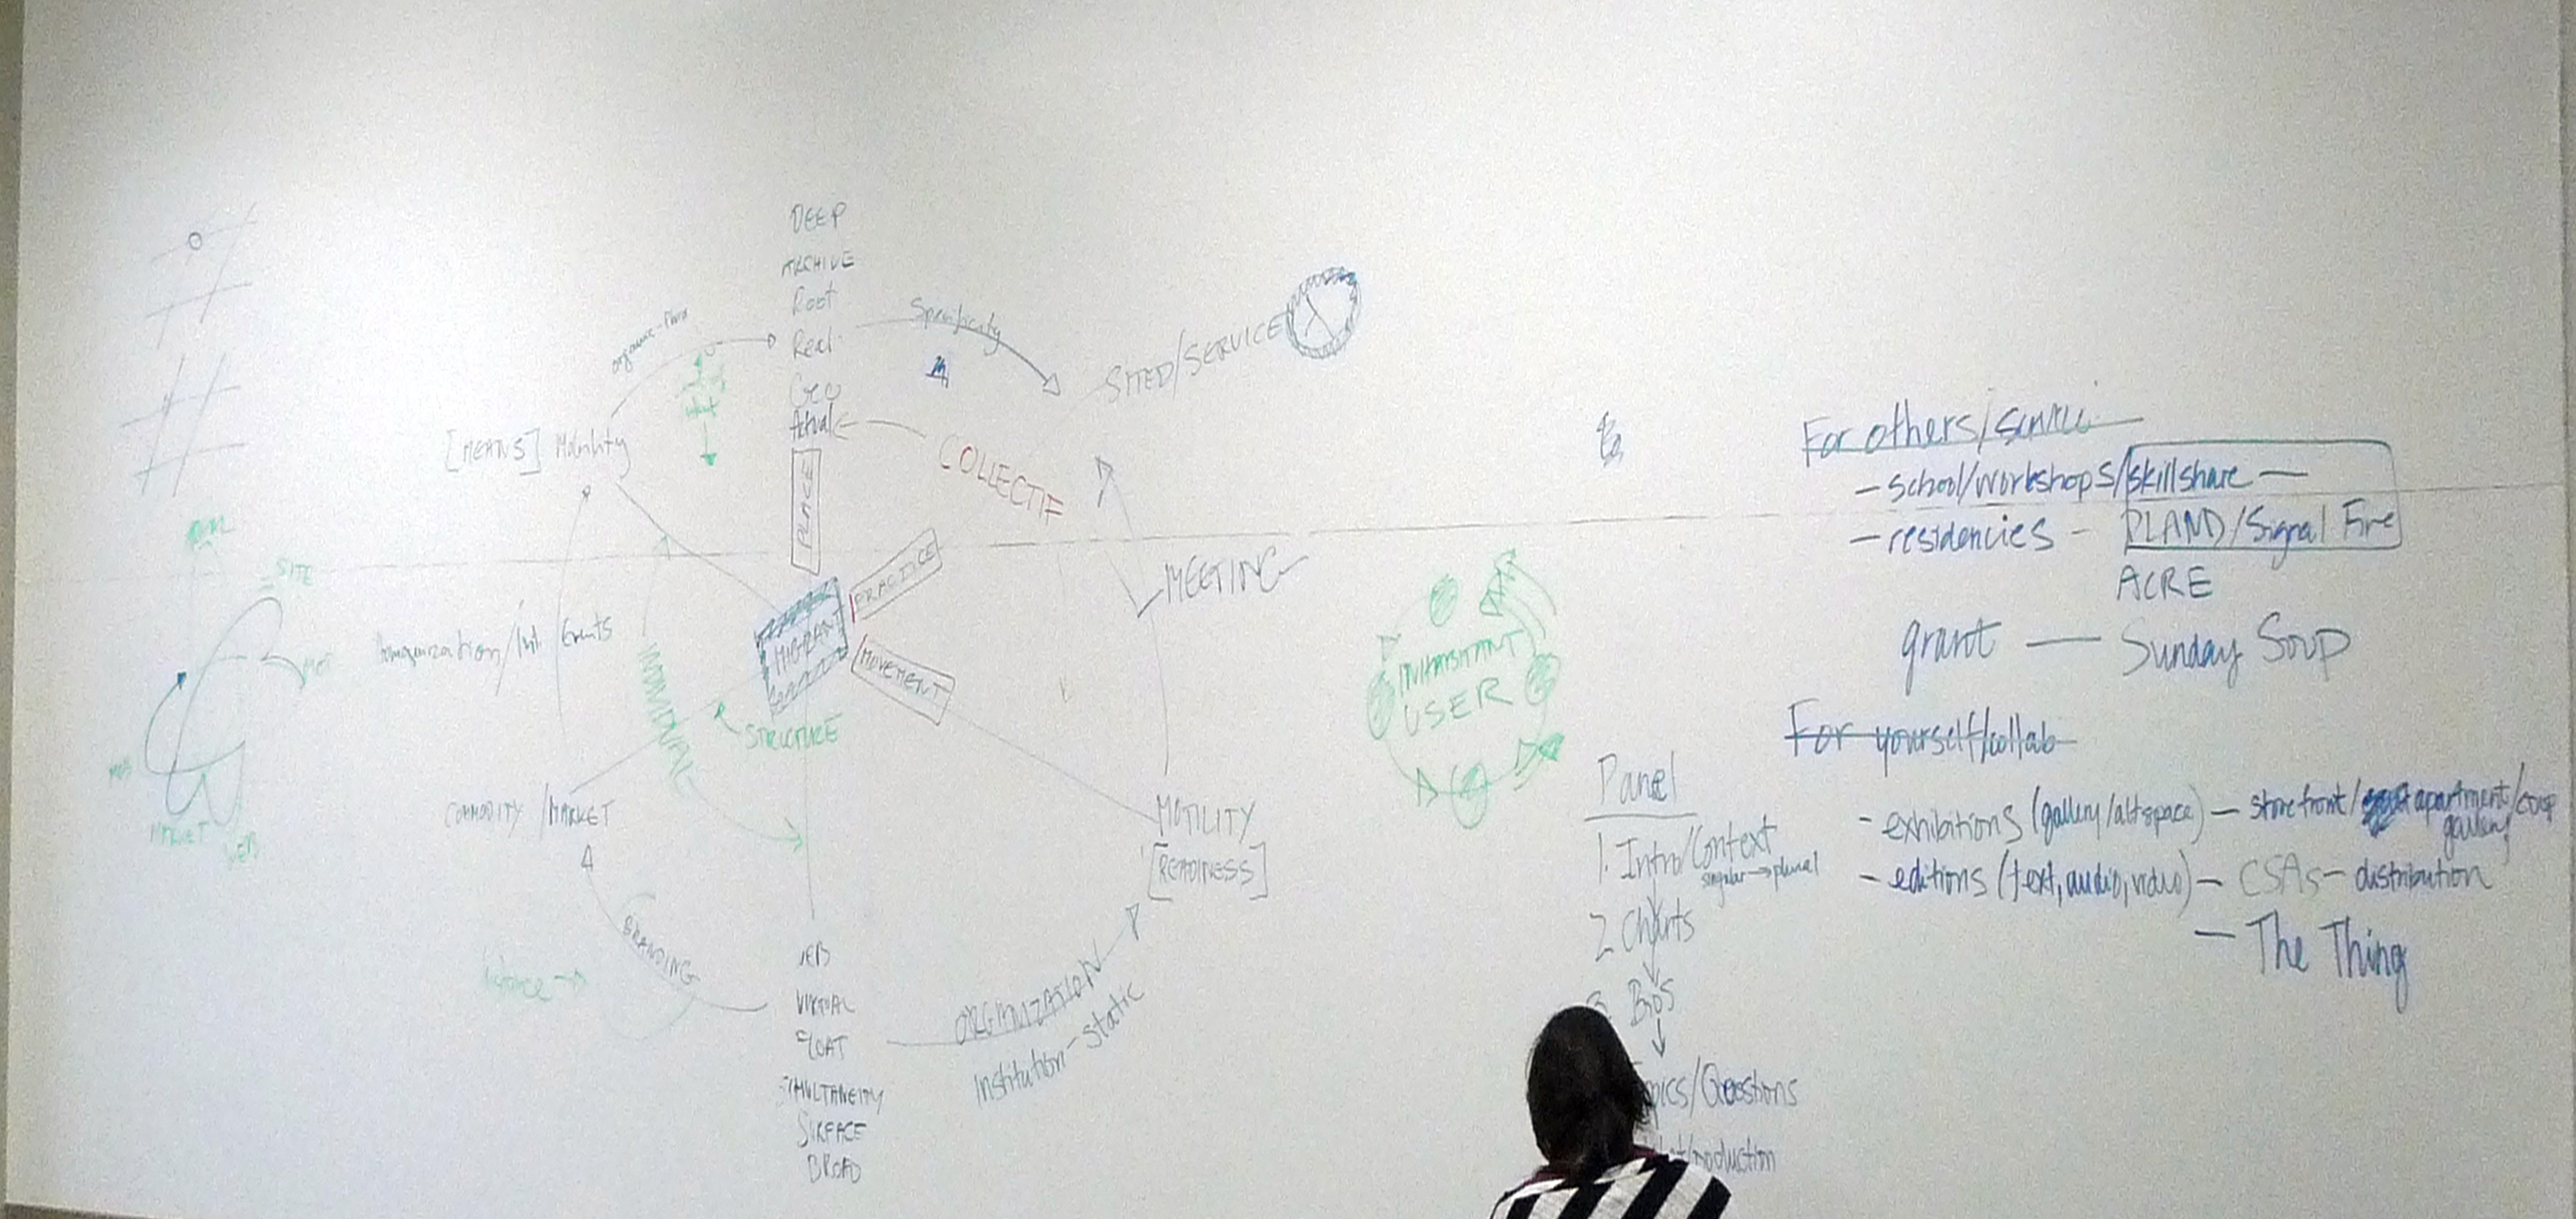 DEEP
ARCHIVE
Root
Real
Geo
Actual
PLACE
organic-fluid
Specificity
SITED/SERVICE
[MEANS] Mobility
COLLECTIF
PRACTICE
MIGRANT
MOVEMENT
MEETING
SITE
MARKET
WEB
Events
INDIVIDUAL
STRUCTURE
COMMODITY/MARKET
MOTILITY
[READINESS]
BRANDING
WEB
VIRTUAL
FLOAT
SIMULTANEITY
SURFACE
BROAD
ORGANIZATION
Institution-static
INHABITANT
USER
Panel
1. Intro/Context
singular→plural
2 Charts
3. Bios
pics/Questions
production
For others/service
- school/workshops/skillshare —
- residencies - PLAND/Signal Fire
ACRE
grant — Sunday Soup
For yourself/collab
- exhibitions (gallery/altspace) — storefront/apartment/coop
gallery
- editions (text, audio, video) — CSAs — distribution
— The Thing